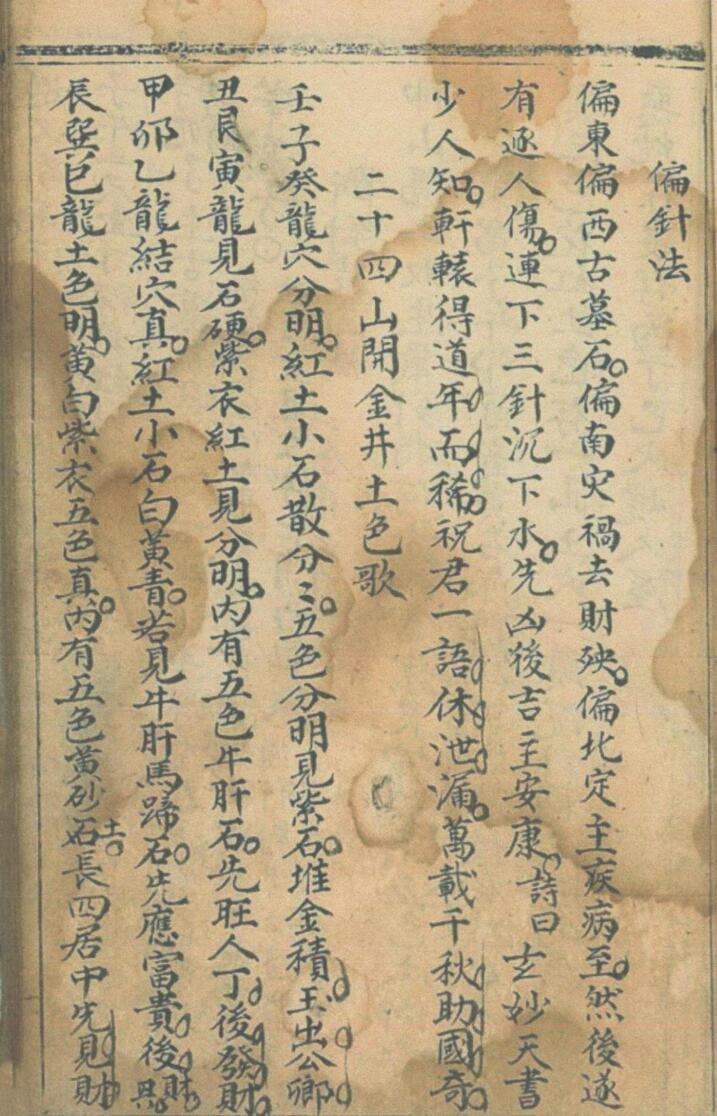 偏針法
偏東偏西古墓石。偏南灾禍去財殃。偏北定主疾病至。然後遂
有逐人傷。連下三針沉下水。先凶後吉主安康。詩曰玄妙天書
少人知。軒轅得道年而稀。祝君一語休泄漏。萬載千秋助國奇。
二十四山開金井土色歌
壬子癸龍穴分明。紅土小石散分〻。五色分明見紫石。堆金積玉出公卿
丑艮寅龍見石硬。紫衣紅土見分明。內有五色牛肝石。先旺人丁後發財。
甲卯乙龍結穴真。紅土小石白黃青。若見牛肝馬蹄石。先應富貴後財
辰巽巳龍土色明。黃白紫衣五色真。內有五色黃砂石土。長四居中先見財